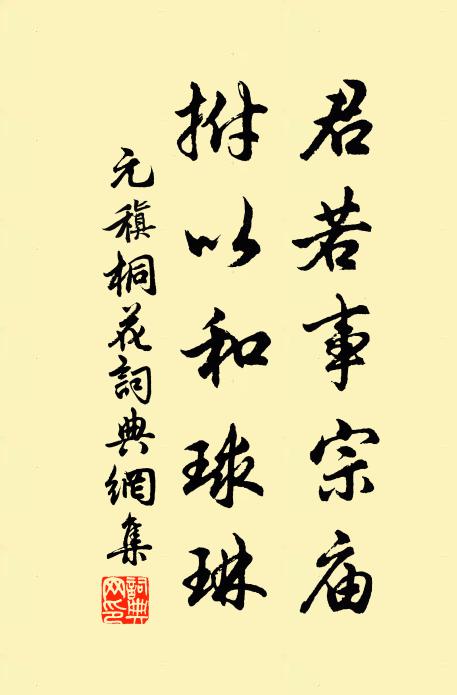 君若事宗庙
拊以和球琳
元稹桐花詞典網集
詞典网印